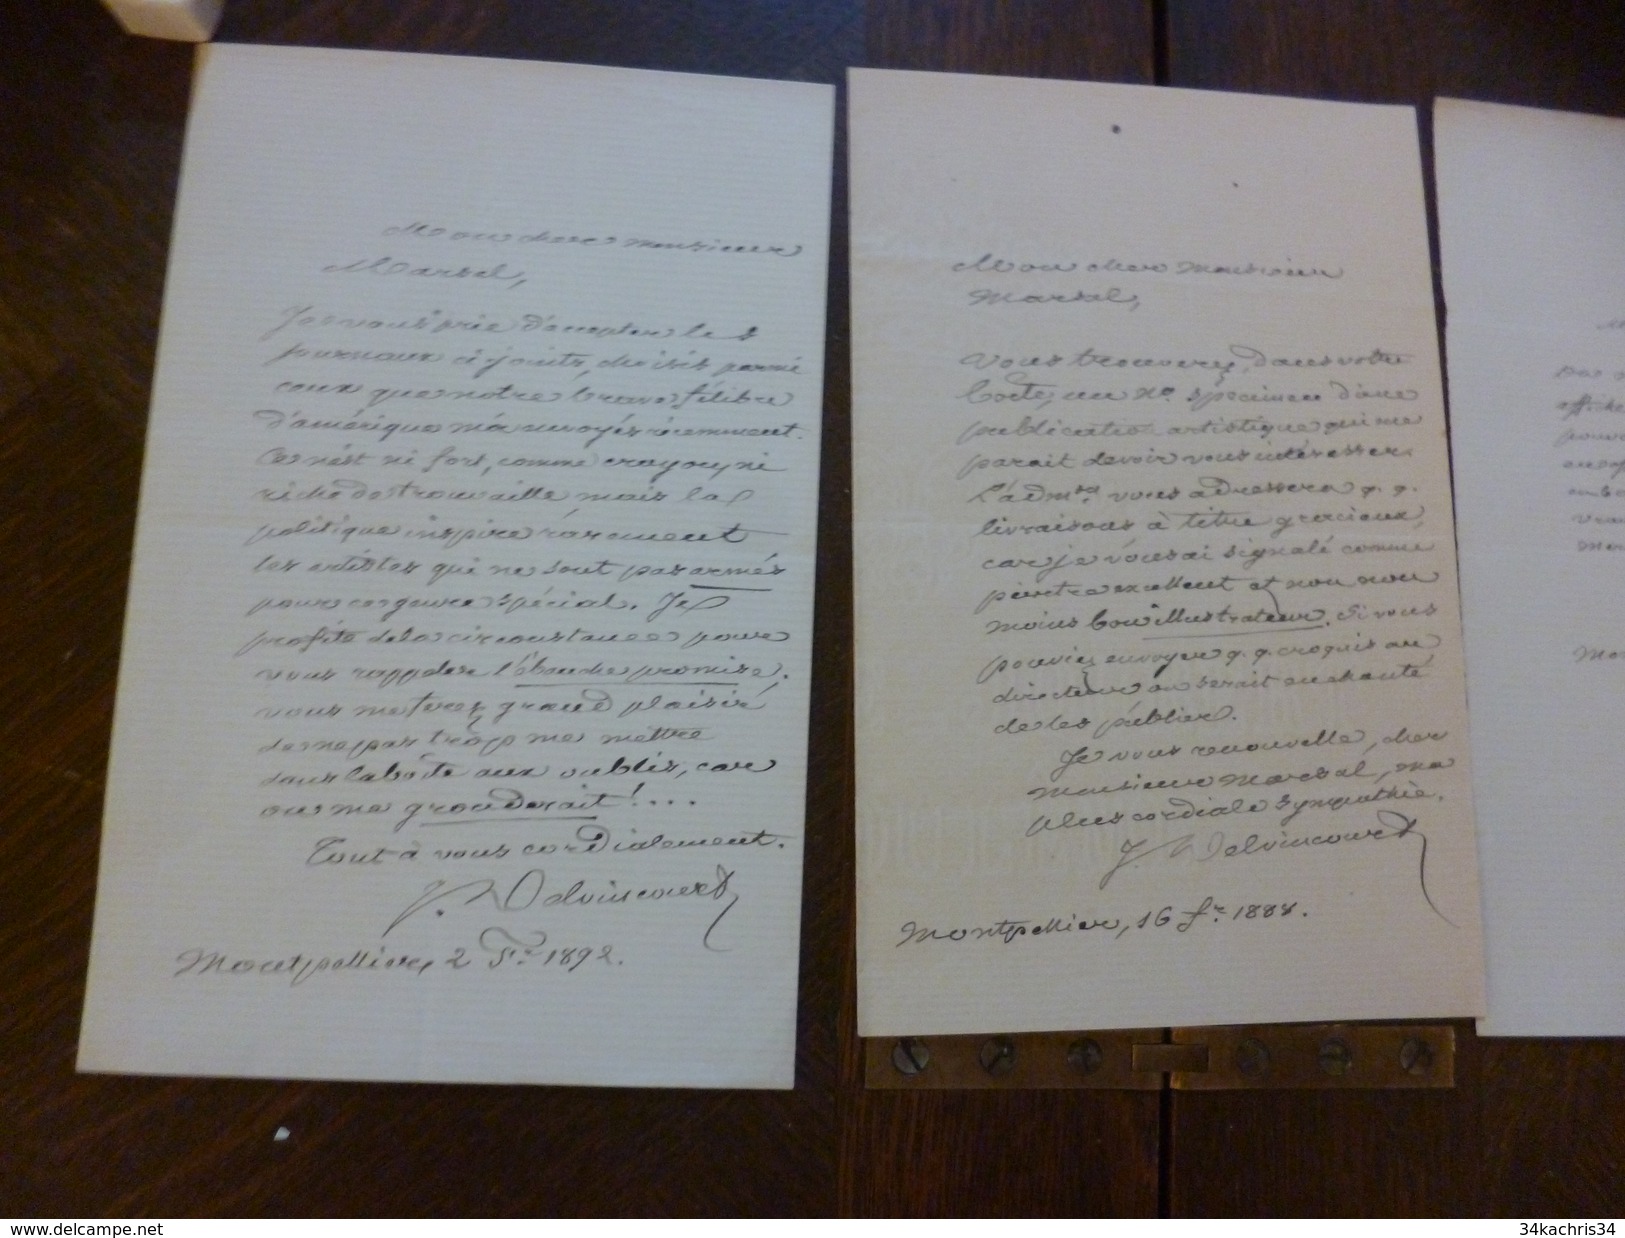 Mon cher monsieur
Marsal,
Je vous prie d'accepter les
journaux ci joints, choisis parmi
ceux que notre brave félibre
d'amérique m'a envoyés récemment.
Ce n'est ni fort, comme crayon, ni
riche de trouvaille mais la
politique inspire rarement
les artistes qui ne sont pas armés
pour ce genre spécial. Je
profite de la circonstance pour
vous rappeler l'ébauche promise.
vous me ferez grand plaisir
de ne pas trop me mettre
dans la boîte aux oublis, car
on me gronderait!...
Tout à vous cordialement.
J. Delvincourt
Montpellier, 2 Fr. 1892.
Mon cher monsieur
Marsal,
Vous trouverez, dans votre
boîte, un No. spécimen d'une
publication artistique qui me
parait devoir vous intéresser.
L'admon vous adressera q. q.
livraisons à titre gracieux,
car je vous ai signalé comme
peintre excellent et non non
moins bon illustrateur. Si vous
pouviez envoyer q. q. croquis au
directeur on serait enchanté
de les publier.
Je vous renouvelle, cher
monsieur Marsal, ma
plus cordiale sympathie.
J. Delvincourt
Montpellier, 16 fr. 1888.
www.delcampe.net
34kachris34